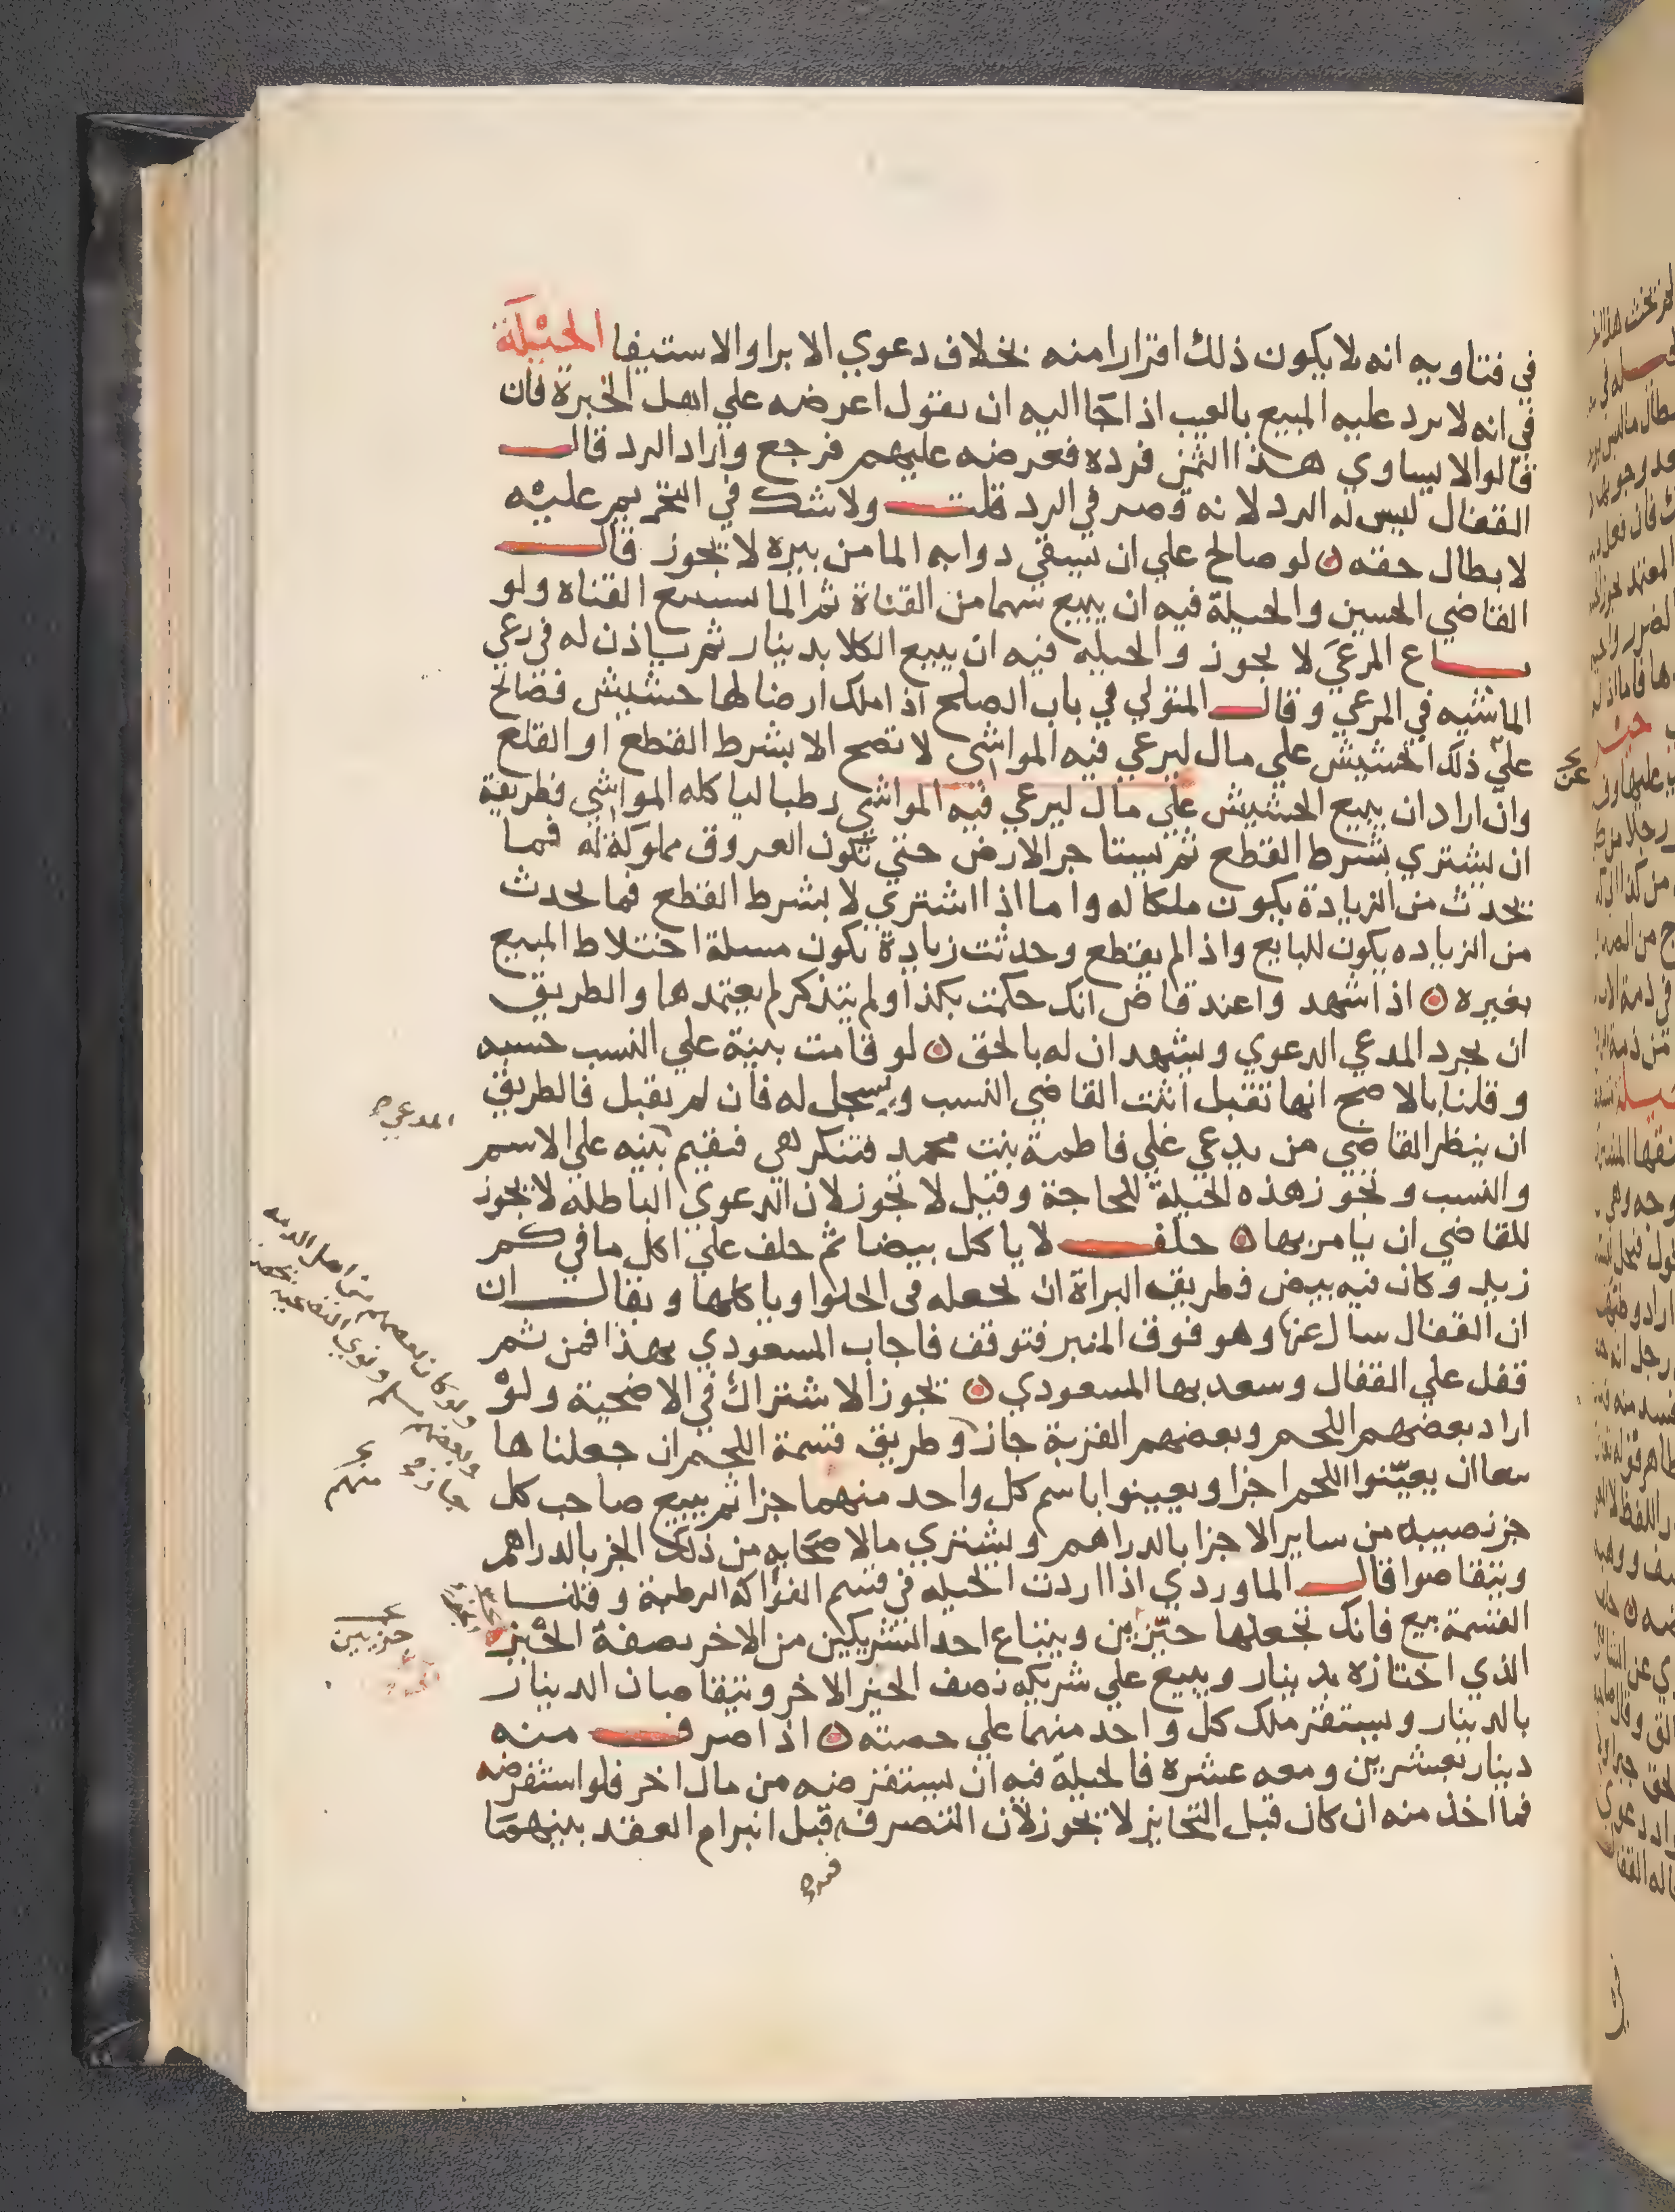 في فتاويه انه لا يكون ذلك اقرارا منه بخلاف دعوي الابرا والاستيفا الحيلة
في انه لا يرد عليه المبيع بالعيب اذا جا اليه ان يقول اعرضه علي اهل الخبرة فان
قالوا لا يساوي هذا الثمن فرده فعرضه عليهم فرجع واراد الرد قال
القفال ليس له الرد لانه قصر في الرد قلت ولا شك في التحريم عليه
لابطال حقه لو صالح علي ان يسقي دوابه الما من بيره لا يجوز قال
القاضي الحسين والحيلة فيه ان يبيع سهما من القناة ثم الما يستتبع القناه ولو
باع المرعي لا يجوز والحيله فيه ان يبيع الكلا بدينار ثم ياذن له في رعي
الماشيه في المرعي وقال المتولي في باب الصلح اذا ملك ارضا لها حشيش فصالح
علي ذلك الحشيش علي مال ليرعي فيه المواشي لا تصح الا بشرط القطع او القلع
وان اراد ان يبيع الحشيش علي مال ليرعي فيه المواشي رطبا لياكله المواشي فطريقة
ان يشتري بشرط القطع ثم يستاجر الارض حتي تكون العروق مملوكة له فما
يحدث من الزيادة يكون ملكا له واما اذا اشتري لا بشرط القطع فما يحدث
من الزياده يكون للبايع واذا لم يقطع وحدثت زيادة يكون مسلة اختلاط المبيع
بغيره اذا شهد واعند قاض انك حكمت بكذا ولم يتذكر لم يعتمدها والطريق
ان يجرد المدعي الدعوي ويشهد ان له بالحق لو قامت بينة علي النسب حسبه
وقلنا بالاصح انها تقبل اثبت القاضي النسب ويسجل له فان لم يقبل فالطريق
ان ينظر القاضي من يدعي علي فاطمة بنت محمد فتنكر هي فيقيم بينه علي الاسم
والنسب وتجوز هذه الحيلة للحاجة وقيل لا تجوز لان الدعوي الباطله لا يجوز
للقاضي ان يامر بها حلف لا ياكل بيضا ثم حلف علي اكل ما في كم
زيد وكان فيه بيض فطريق البراة ان يجعله في الحلوا وياكلها ويقال ان
ان القفال سال عنها وهو فوق المنبر فتوقف فاجاب المسعودي بهذا فمن ثم
قفل علي القفال وسعد بها المسعودي يجوز الاشتراك في الاضحية ولو
اراد بعضهم اللحم وبعضهم القربة جاز وطريق قسمة اللحم ان جعلناها
بيعا ان يعينوا اللحم اجزا ويعينوا باسم كل واحد منهما جزا ثم يبيع صاحب كل
جز نصيبه من ساير الاجزا بالدراهم ويشتري ما لاصحابه من ذلك الجز بالدراهم
ويتقاصوا قال الماوردي اذا اردت الحيله في قسم الفواكه الرطبة وقلنا
القسمة بيع فانك تجعلها حيزين ويبتاع احد الشريكين من الاخر نصفة الحيز
الذي اختازه بدينار ويبيع علي شريكه نصف الحيز الاخر ويتقاصان الدينار
بالدينار ويستقر ملك كل واحد منهما علي حصته اذا صرف منه
دينار بعشرين ومعه عشره فالحيلة فيه ان يستقرضه من مال اخر فلو استقرضه
فما اخذ منه ان كان قبل التخاير لا تجوز لان التصرف قبل انبرام العقد بينهما
المدعي
ولو كان بعضهم من اهل الذمه
وبعضهم مسلم ونوي التضاحيه
جاز
منهم
جزيين